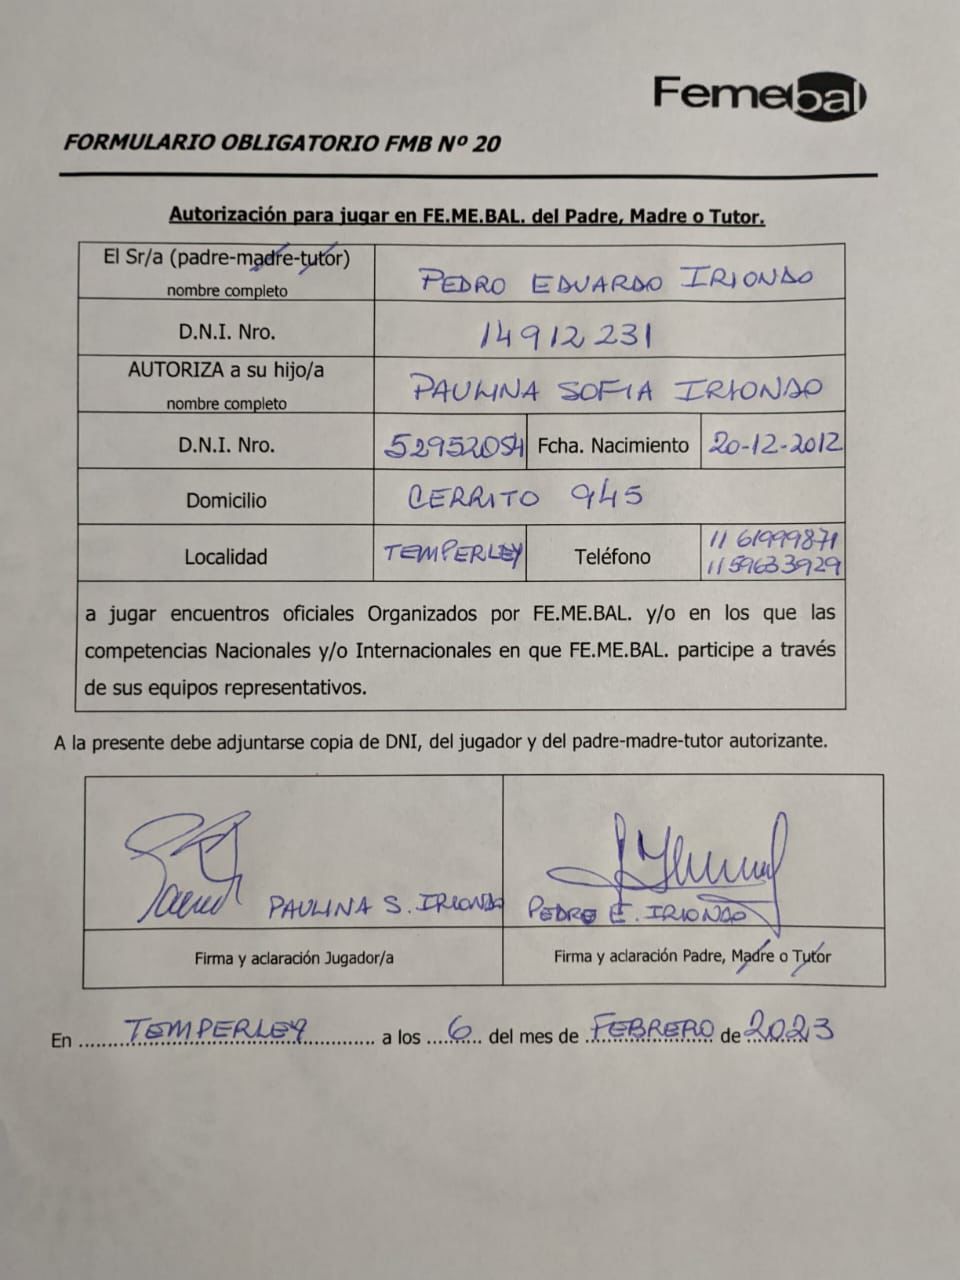 Femebal
FORMULARIO OBLIGATORIO FMB Nº 20
Autorización para jugar en FE.ME.BAL. del Padre, Madre o Tutor.
El Sr/a (padre-madre-tutor) PEDRO EDUARDO IRIONDO
nombre completo
D.N.I. Nro. 14912231
AUTORIZA a su hijo/a PAULINA SOFIA IRIONDO
nombre completo
D.N.I. Nro. 52952054 Fcha. Nacimiento 20-12-2012
Domicilio CERRITO 945
Localidad TEMPERLEY Teléfono 11 61999871
11 59633929
a jugar encuentros oficiales Organizados por FE.ME.BAL. y/o en los que las
competencias Nacionales y/o Internacionales en que FE.ME.BAL. participe a través
de sus equipos representativos.
A la presente debe adjuntarse copia de DNI, del jugador y del padre-madre-tutor autorizante.
PAULINA S. IRIONDO PEDRO E. IRIONDO
Firma y aclaración Jugador/a Firma y aclaración Padre, Madre o Tutor
En TEMPERLEY a los 6 del mes de FEBRERO de 2023